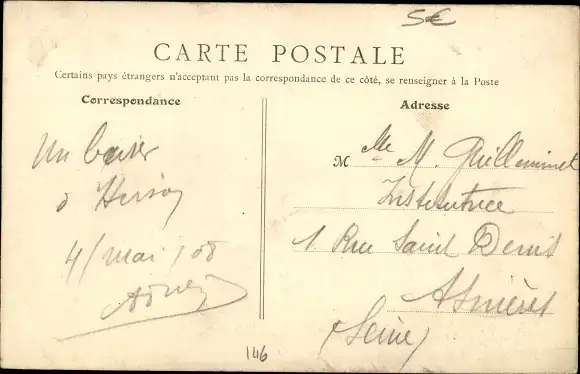 5€
CARTE POSTALE
Certains pays étrangers n'acceptant pas la correspondance de ce côté, se renseigner à la Poste
Correspondance
Adresse
Un baiser
d
4/ mai / 08
M lle M. Guilleminet
Institutrice
1 Rue Saint Denis
Asnières
(Seine)
146